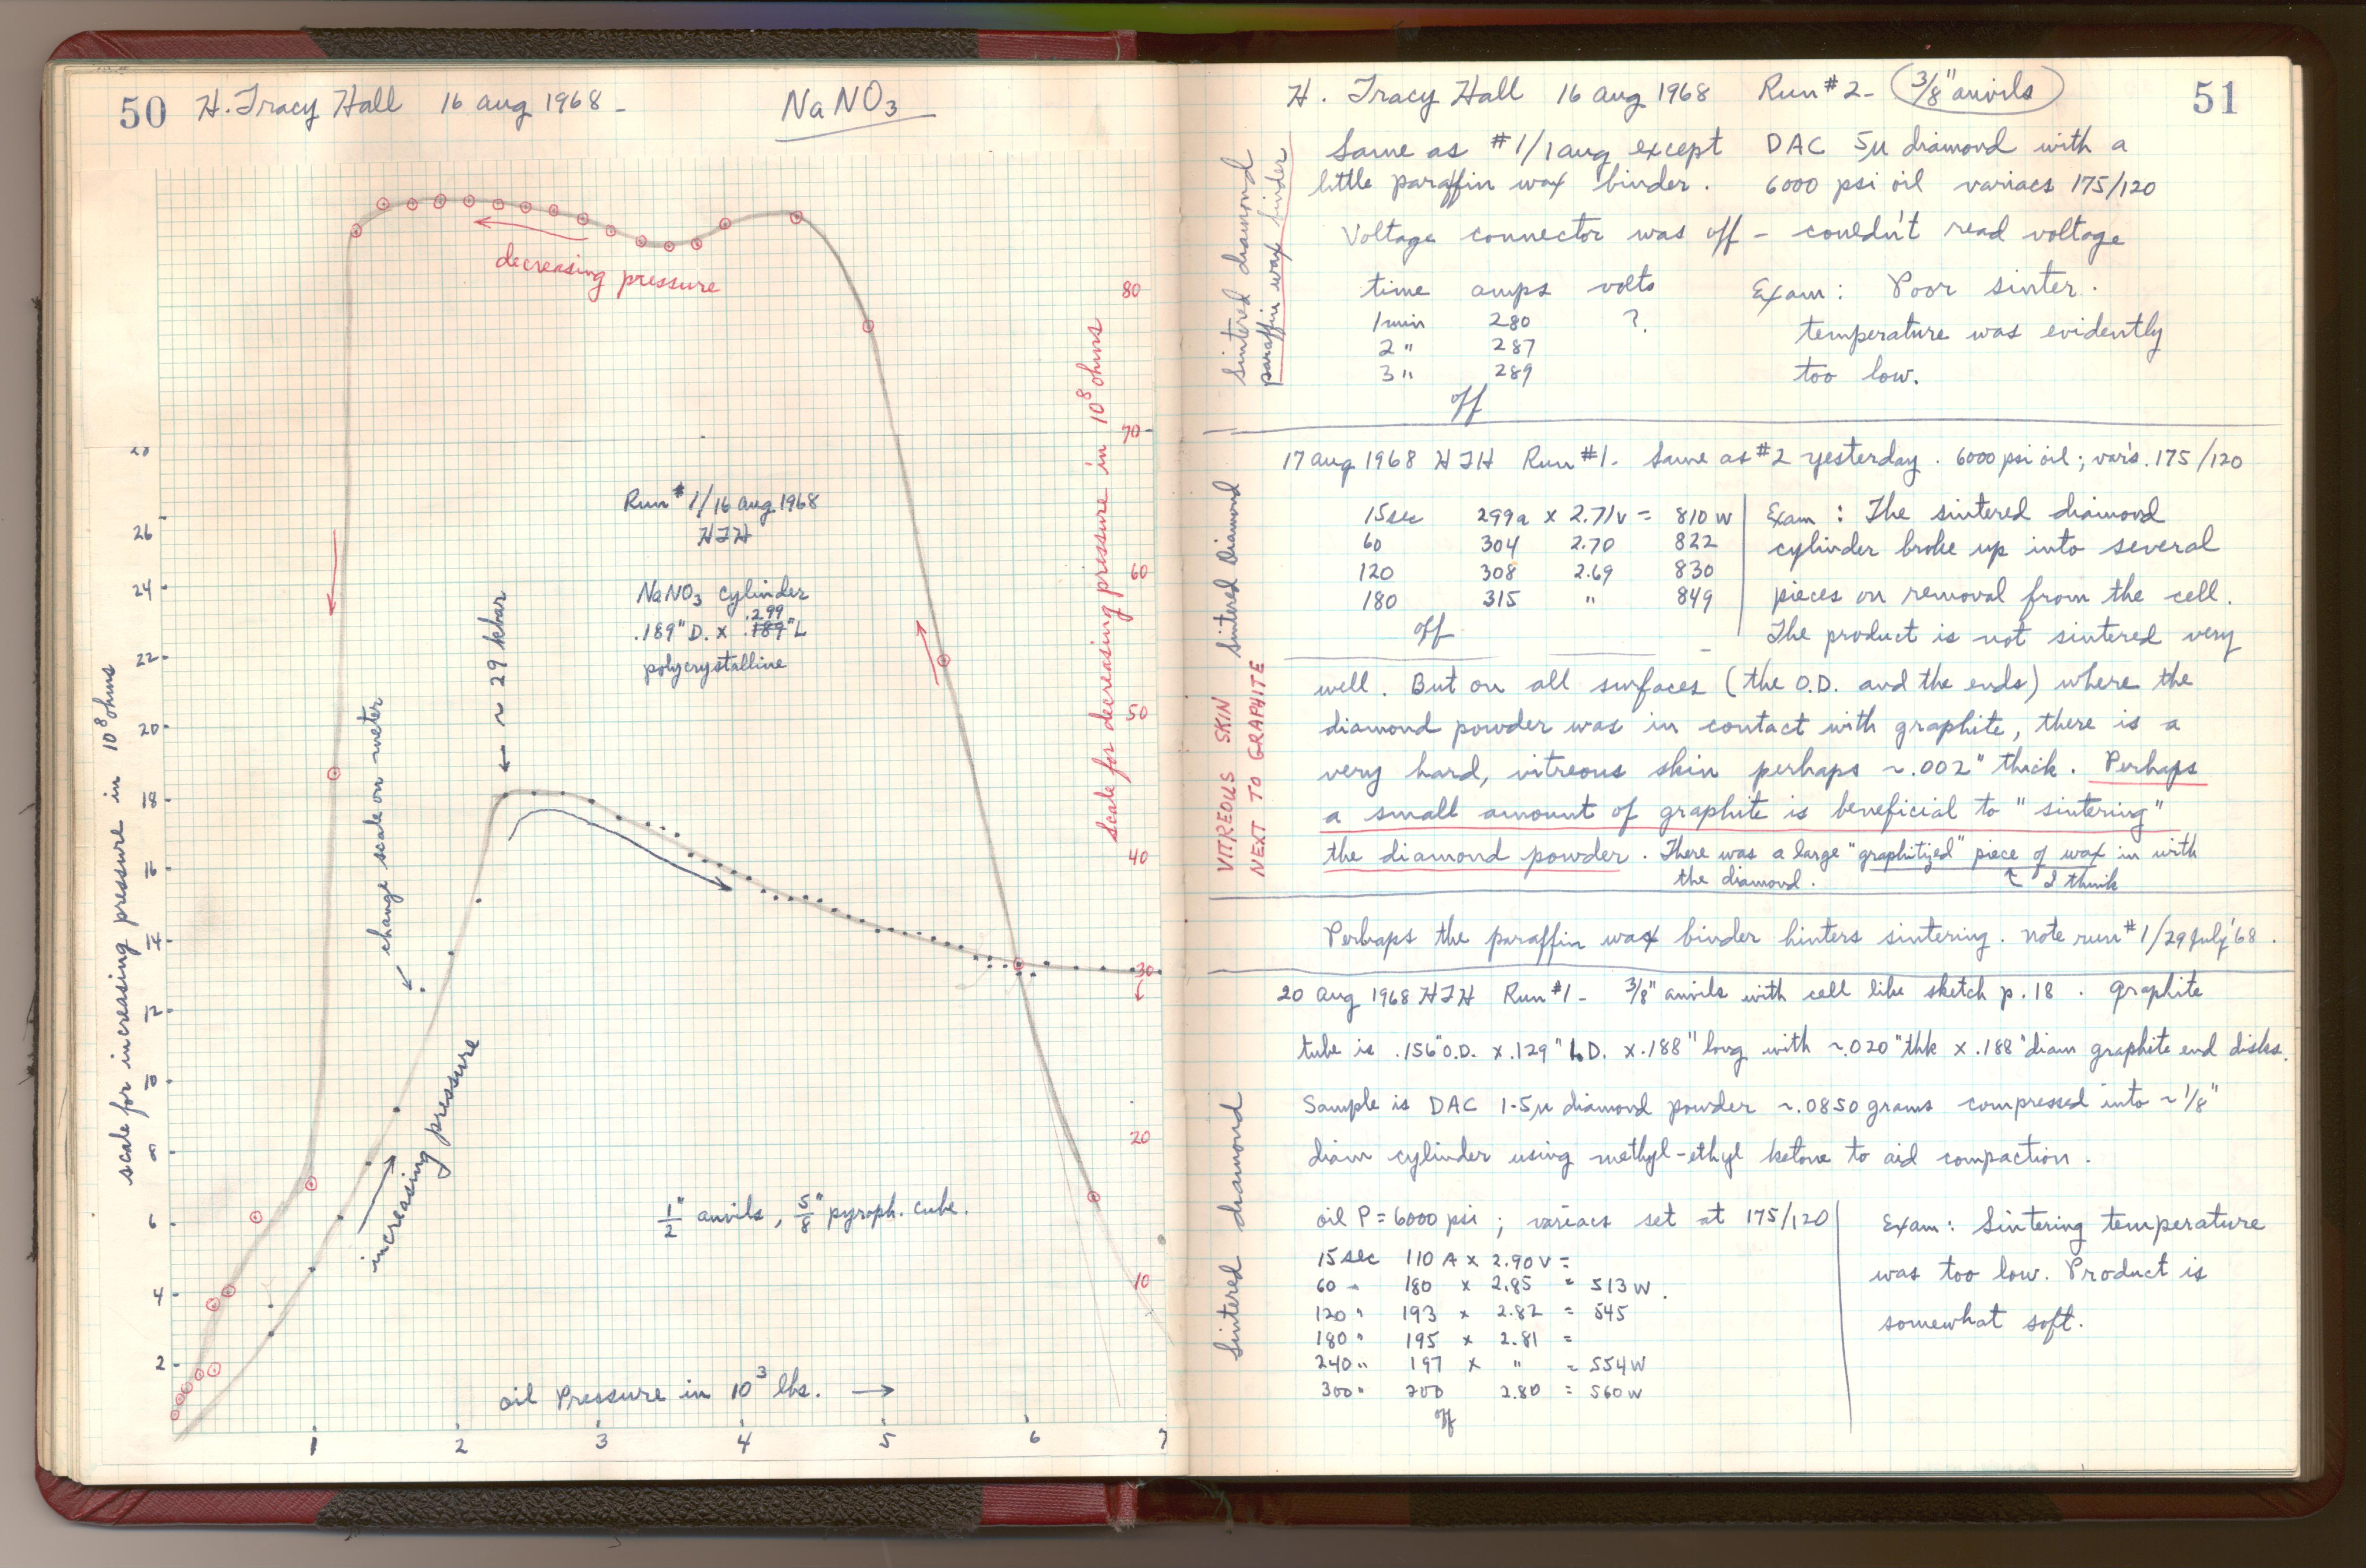 50 H. Tracy Hall 16 aug 1968 - NaNO3
decreasing pressure
Run #1/16 aug 1968
HTH
NaNO3 cylinder
.299
.189" D. x .189" L
polycrystalline
← ~ 29 kbar
← change scale on meter
increasing pressure
scale for increasing pressure in 10^8 ohms
28
26
24
22
20
18
16
14
12
10
8
6
4
2
scale for decreasing pressure in 10^8 ohms
80
70
60
50
40
30
20
10
1/2" anvils, 5/8" pyroph. cube.
oil Pressure in 10^3 lbs. →
1 2 3 4 5 6 7
H. Tracy Hall 16 aug 1968 Run #2- 3/8" anvils 51
sintered diamond
paraffin wax binder
Same as #1/1 aug except DAC 5μ diamond with a
little paraffin wax binder. 6000 psi oil variacs 175/120
Voltage connector was off - couldn't read voltage
time amps volts Exam: Poor sinter.
1 min 280 ? temperature was evidently
2 " 287 too low.
3 " 289
off
17 aug 1968 HTH Run #1- Same as #2 yesterday. 6000 psi oil; var's. 175/120
sintered diamond
VITREOUS SKIN
NEXT TO GRAPHITE
15 sec 299a x 2.71v = 810 W Exam: The sintered diamond
60 304 2.70 822 cylinder broke up into several
120 308 2.69 830 pieces on removal from the cell.
180 315 " 849 The product is not sintered very
off
well. But on all surfaces (the O.D. and the ends) where the
diamond powder was in contact with graphite, there is a
very hard, vitreous skin perhaps ~.002" thick. Perhaps
a small amount of graphite is beneficial to "sintering"
the diamond powder. There was a large "graphitized" piece of wax in with
the diamond. ↑ I think
Perhaps the paraffin wax binder hinters sintering. note run #1/29 July '68.
20 aug 1968 HTH Run #1- 3/8" anvils with cell like sketch p. 18. graphite
tube is .156" O.D. x .129" I.D. x .188" long with ~.020" thk x .188" diam graphite end disks.
sintered diamond
Sample is DAC 1-5μ diamond powder ~.0850 grams compressed into ~1/8"
diam cylinder using methyl-ethyl ketone to aid compaction.
oil P = 6000 psi; variacs set at 175/120 Exam: Sintering temperature
15 sec 110 A x 2.90 V = was too low. Product is
60 " 180 x 2.85 = 513 W. somewhat soft.
120 " 193 x 2.82 = 545
180 " 195 x 2.81 =
240 " 197 x " = 554 W
300 " 200 2.80 = 560 W
off